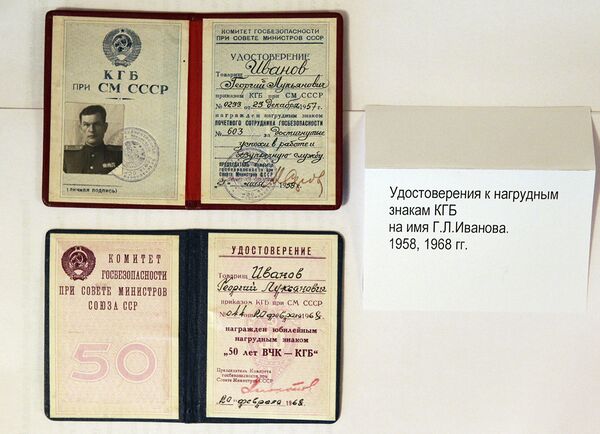 КГБ
ПРИ СМ СССР
(личная подпись)
КОМИТЕТ ГОСБЕЗОПАСНОСТИ
ПРИ СОВЕТЕ МИНИСТРОВ СССР
УДОСТОВЕРЕНИЕ
Иванов
Товарищ
Георгий Лукьянович
приказом КГБ при СМ СССР
№ 0293 от 23 декабря 1957 г.
награжден нагрудным знаком
ПОЧЕТНОГО СОТРУДНИКА ГОСБЕЗОПАСНОСТИ
№ 603 за достигнутые
успехи в работе и
безупречную службу.
ПРЕДСЕДАТЕЛЬ КОМИТЕТА
госбезопасности при
Совете Министров СССР
мая 1958 г.
КОМИТЕТ
ГОСБЕЗОПАСНОСТИ
ПРИ СОВЕТЕ МИНИСТРОВ
СОЮЗА ССР
50
УДОСТОВЕРЕНИЕ
Товарищ Иванов
Георгий Лукьянович
приказом КГБ при СМ СССР
№ 044 от 20 февраля 1968 г.
награжден юбилейным
нагрудным знаком
"50 лет ВЧК — КГБ"
Председатель Комитета
госбезопасности при
Совете Министров СССР
"20" февраля 1968 г.
Удостоверения к нагрудным
знакам КГБ
на имя Г.Л.Иванова.
1958, 1968 гг.